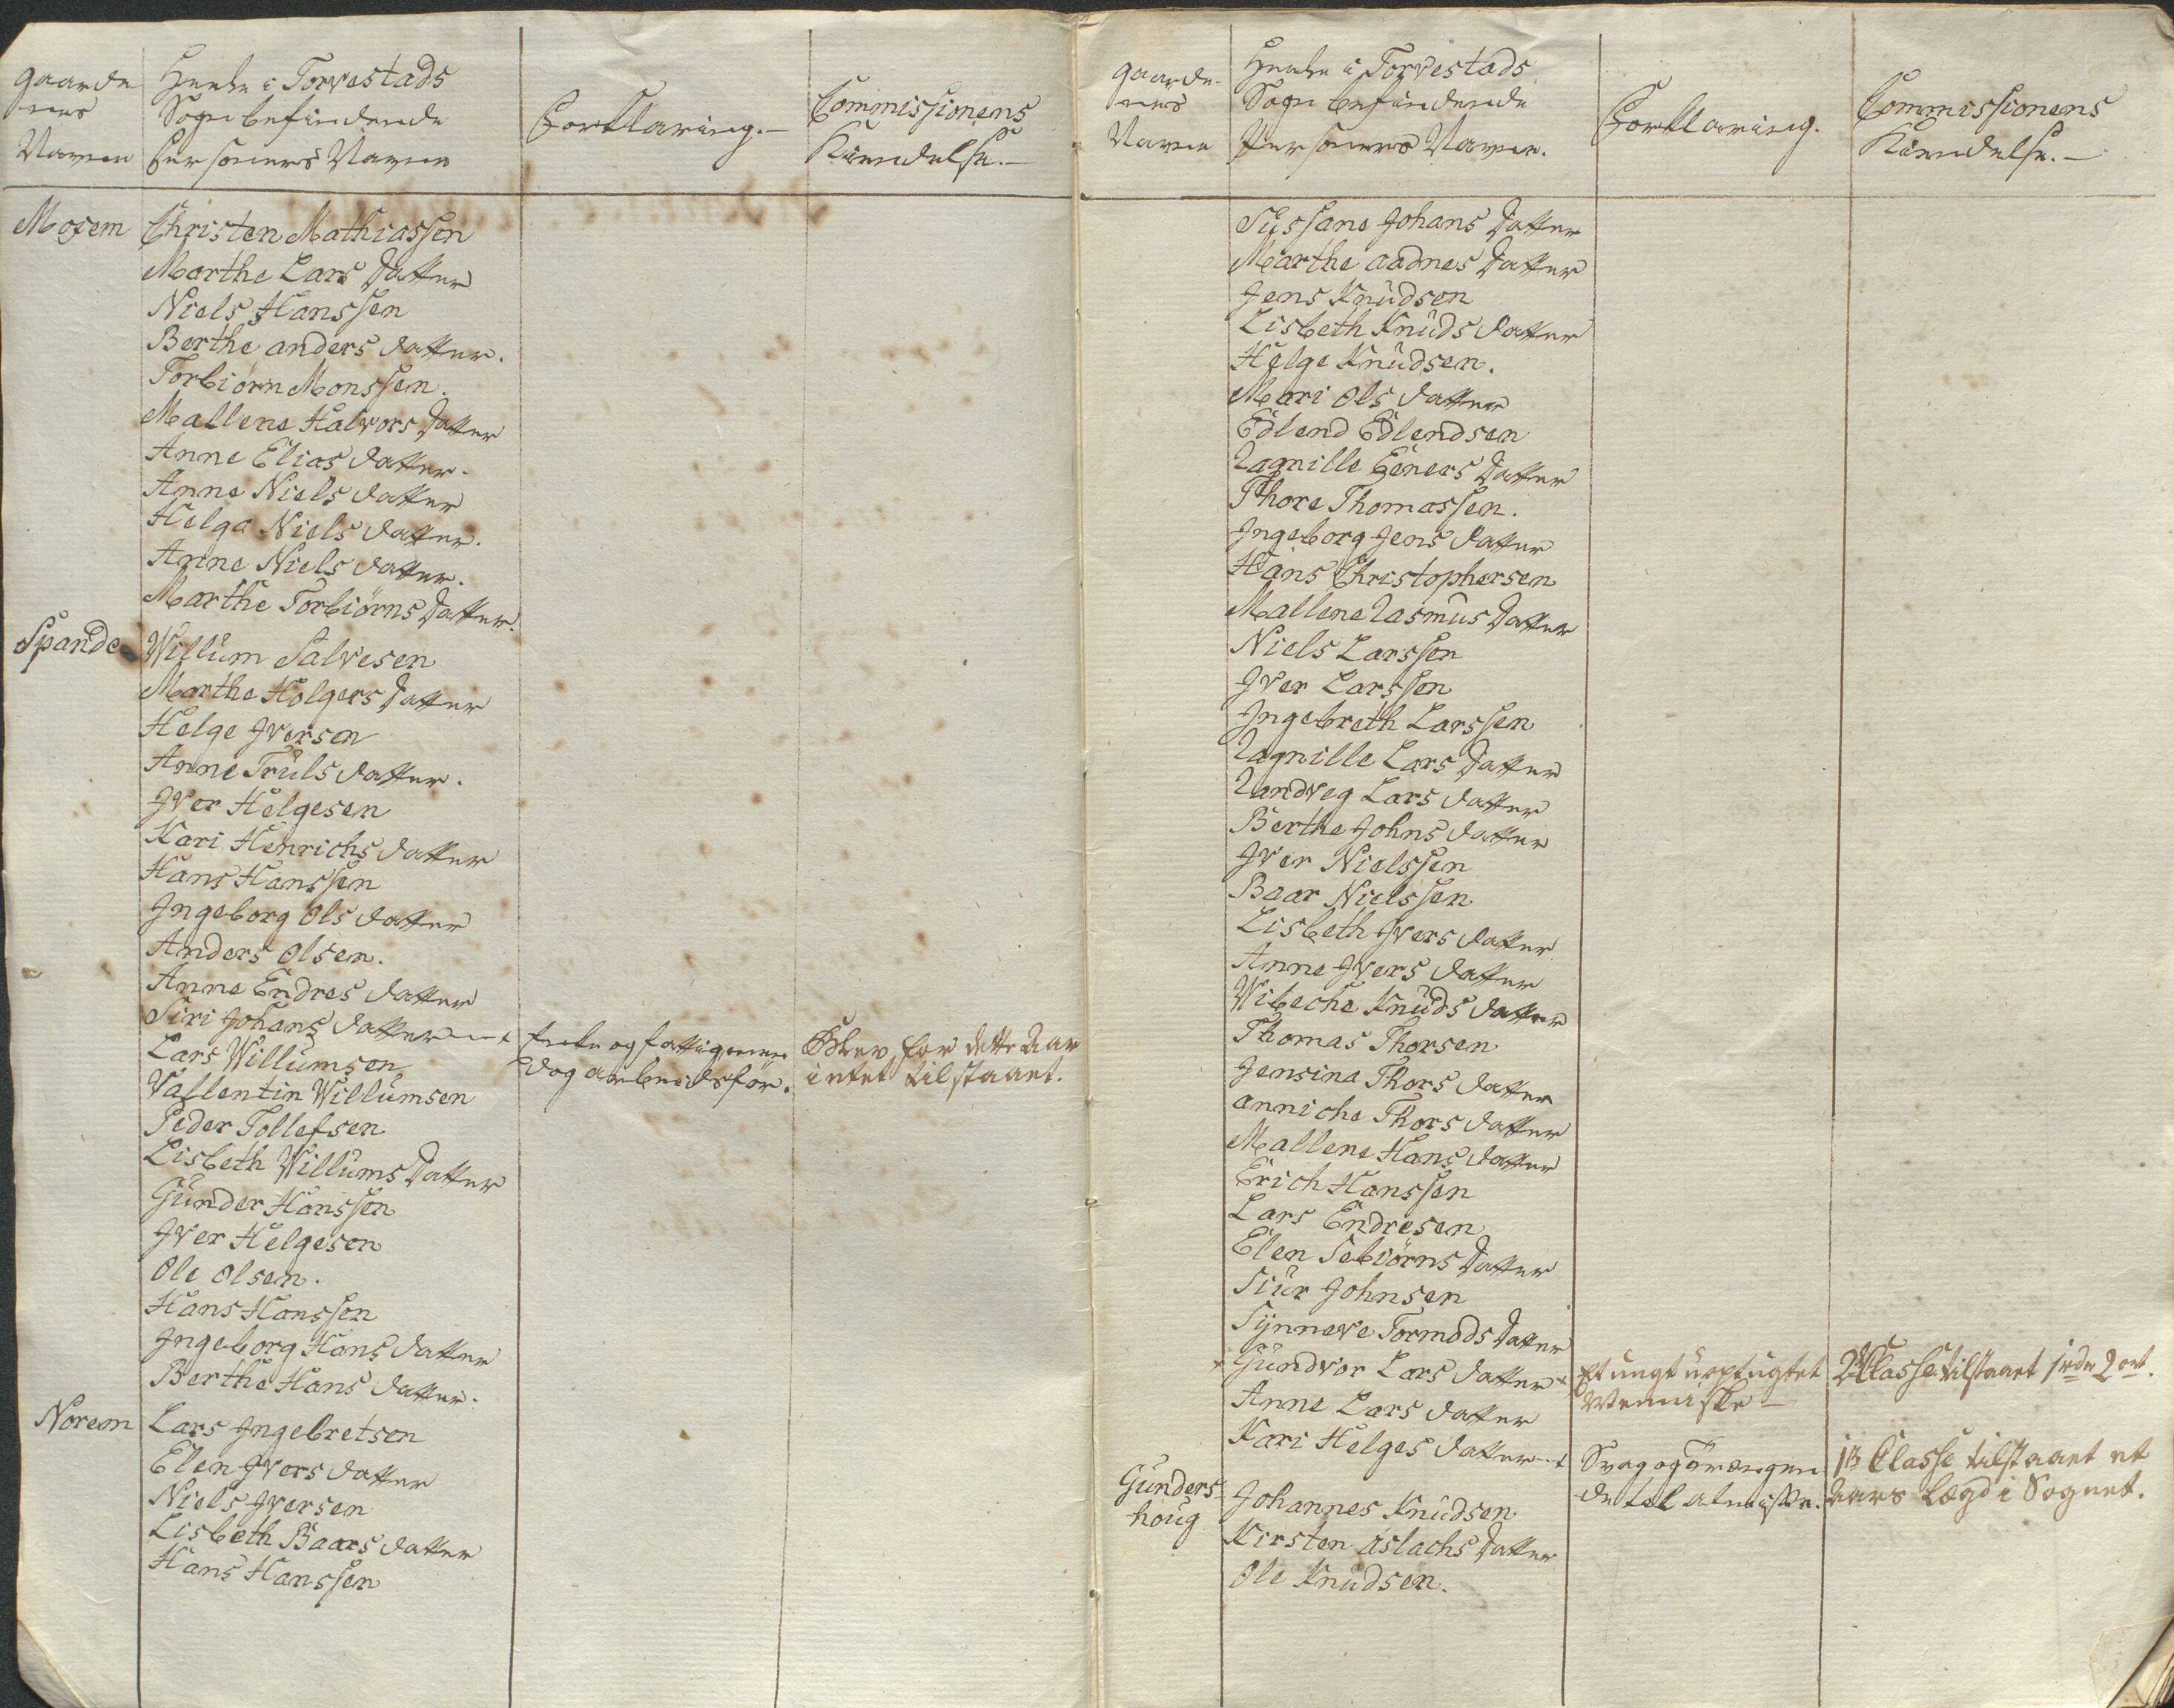 Gaarde-
nes
Navne
Heele i Torvestads
Sogn befindende
Personers Navne
Forklaring.
Commissionens
Kiendelse.
Mosem
Christen Mathiassen
Marthe Lars Datter
Niels Hanssen
Berthe anders datter.
Torbiörn Monssen.
Mallene Halvors Datter
Anne Elias datter.
Anne Niels datter
Helga Niels datter.
Anne Niels datter.
Marthe Torbiörns Datter.
Spande
Willum Salvesen
Marthe Holgers Datter
Helge Iversen
Anne Truls datter.
Iver Helgesen
Kari Henrichs datter
Hans Hanssen
Ingeborg Ols datter
Anders Olsen.
Anne Endres datter
Siri Johans datter
Enke og fattig men
dog arbeidsför.
Bliver for dette Aar
intet tilstaaet.
Lars Willumsen
Vallentin Willumsen
Peder Tollefsen
Lisbeth Willums Datter
Gunder Hanssen
Iver Helgesen
Ole Olsen.
Hans Hanssen
Ingeborg Hans datter
Berthe Hans datter.
Norem
Lars Ingebretsen
Elen Ivers datter
Niels Iversen
Lisbeth Baars datter
Hans Hanssen
Gaarde-
nes
Navne
Heele i Torvestads
Sogn befindende
Personers Navne.
Forklaring.
Commissionens
Kiendelse.
Sussane Johans Datter
Marthe aadnes Datter
Jens Knudsen
Lisbeth Knuds datter
Helge Knudsen.
Mari Ols datter
Edlend Edlendsen
Ragnille Eeners Datter
Thore Thomassen.
Ingeborg Jens datter
Hans Christophersen
Mallene Rasmus Datter
Niels Larssen
Iver Larssen
Ingebreth Larssen
Ragnille Lars Datter
Randveg Lars datter
Berthe Johns datter
Iver Nielssen
Baar Nielssen
Lisbeth Ivers datter
Anne Ivers datter
Wibeche Knuds datter
Thomas Thorsen
Jensine Thors datter
anniche Thors datter
Mallene Hans datter
Erich Hanssen
Lars Endresen
Elen Sebiörns Datter
Siur Johnsen
Synneve Tormods Datter
Gundvor Lars datter
et ungt
Menniske
2den Classe tilstaaet 1 rdr 2 ort.
Anne Lars datter
Kari Helges datter
Svag og
1ste Classe tilstaaet et
Aars Lægd i Sognet.
Gunders-
houg
Johannes Knudsen
Kirsten aslachs Datter
Ole Knudsen.